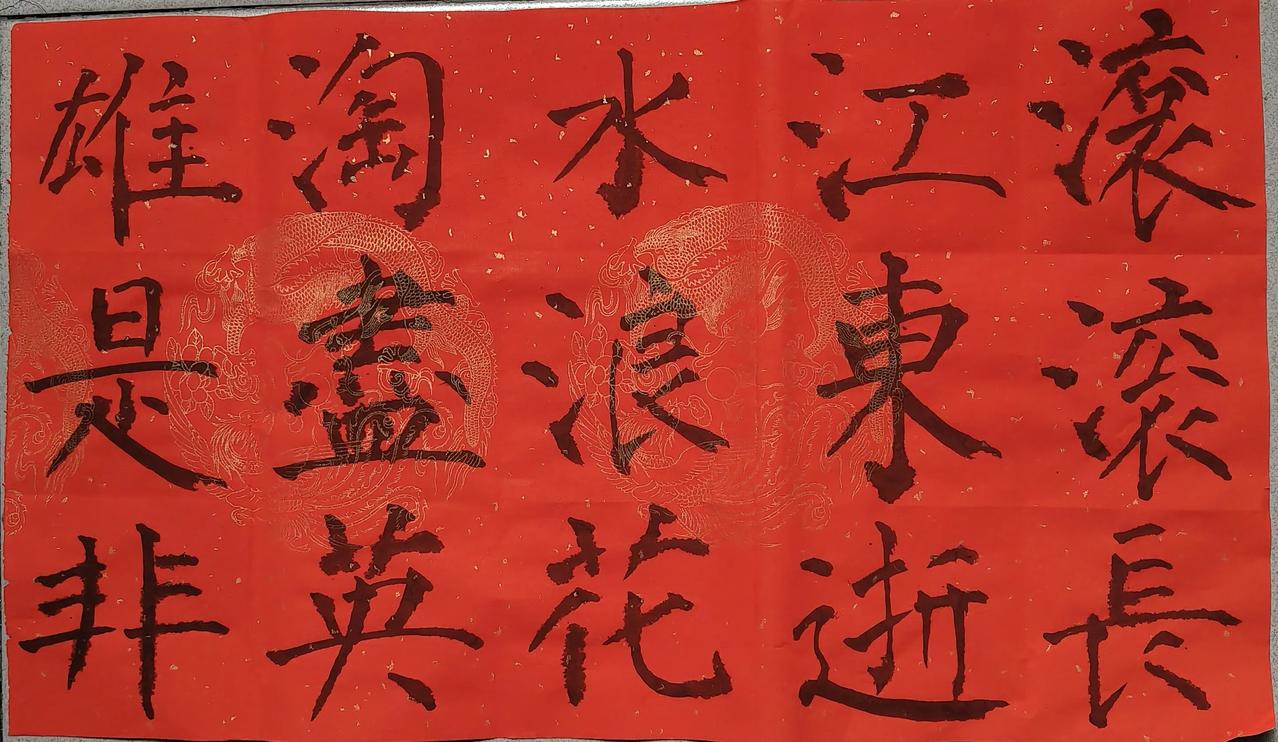 滾滾長
江東逝
水浪花
淘盡英
雄是非